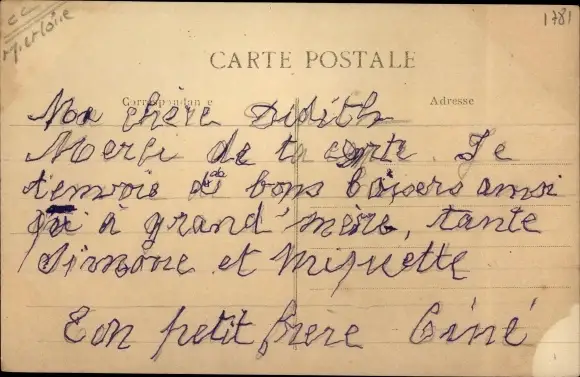 CC
M. et Loire
1781
CARTE POSTALE
Correspondance
Adresse
Ma chère Didith
Merci de ta carte. Je
t'envoie de bons baisers ainsi
qu'à grand'mère, tante
Simone et Miquette
Ton petit frere Riné